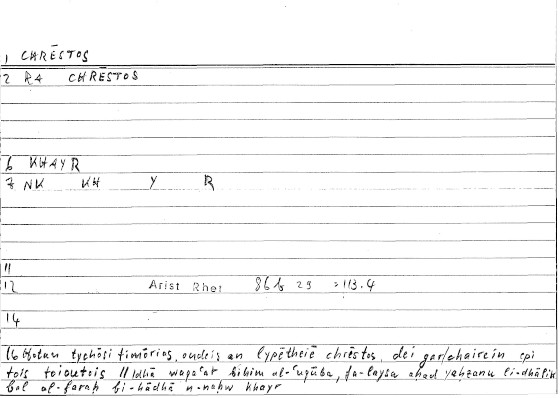 1 CHRĒSTOS
2 R4 CHRĒSTOS
6 KHAYR
7 NK KH Y R
11
12 Arist Rhet 86b 29 =113.4
14
16 Hotan tychōsi timōrias, oudeis an lypētheiē chrēstos, dei gar/chairein epi
tois toioutois // Idhā waqaʿat bihim al-ʿuqūba, fa-laysa aḥad yaḥzanu li-dhālik
bal al-faraḥ bi-hādhā n-naḥw khayr